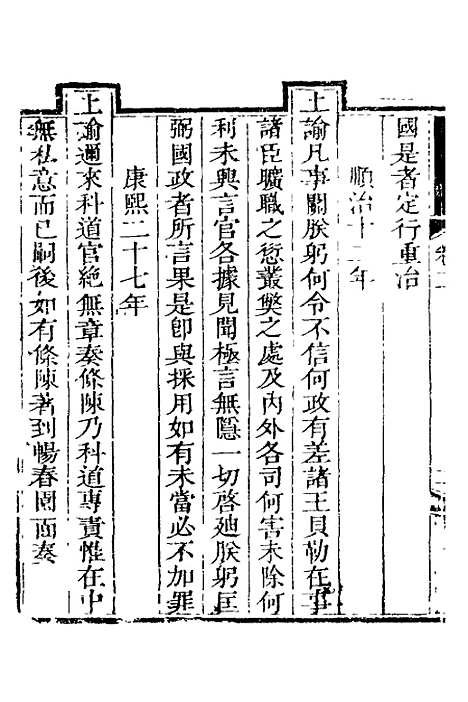 國是者定行重治
順治十二年
上諭凡事關朕躬何令不信何政有差諸王貝勒在事
諸臣曠職之愆叢獘之處及內外各司何害未除何
利未興言官各據見聞極言無隱一切啓廸朕躬匡
弼國政者所言果是卽與採用如有未當必不加罪
康熙二十七年
上諭邇來科道官絶無章奏條陳乃科道專責惟在中
無私意而已嗣後如有條陳著到暢春園面奏